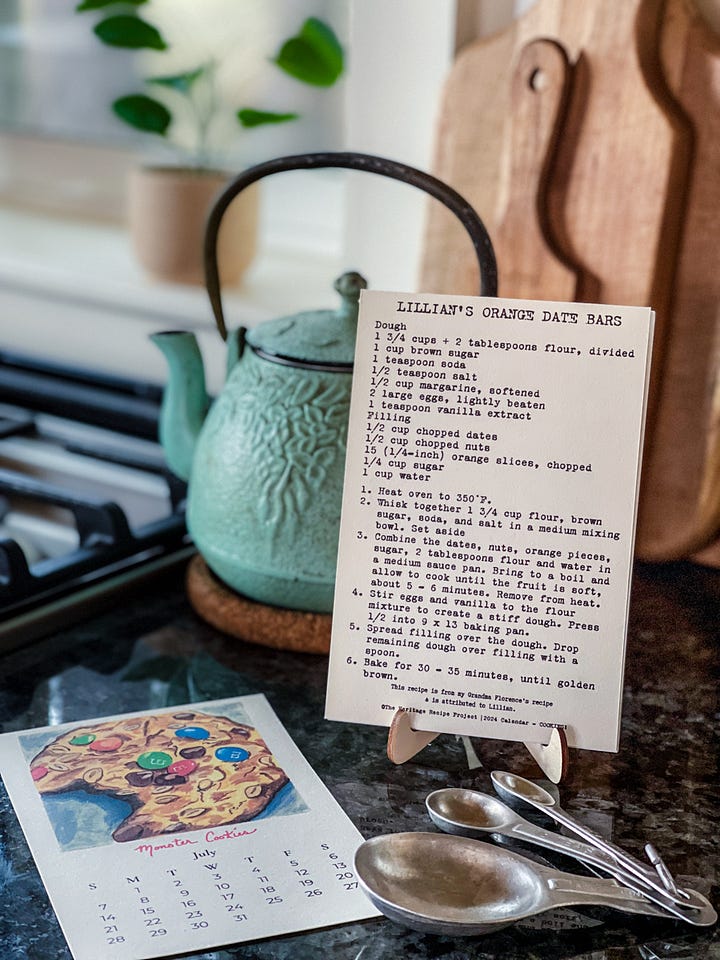 LILLIAN'S ORANGE DATE BARS
Dough
1 3/4 cups + 2 tablespoons flour, divided
1 cup brown sugar
1 teaspoon soda
1/2 teaspoon salt
1/2 cup margarine, softened
2 large eggs, lightly beaten
1 teaspoon vanilla extract
Filling
1/2 cup chopped dates
1/2 cup chopped nuts
15 (1/4-inch) orange slices, chopped
1/4 cup sugar
1 cup water
1. Heat oven to 350°F.
2. Whisk together 1 3/4 cup flour, brown
sugar, soda, and salt in a medium mixing
bowl. Set aside
3. Combine the dates, nuts, orange pieces,
sugar, 2 tablespoons flour and water in
a medium sauce pan. Bring to a boil and
allow to cook until the fruit is soft,
about 5 - 6 minutes. Remove from heat.
4. Stir eggs and vanilla to the flour
mixture to create a stiff dough. Press
1/2 into 9 x 13 baking pan.
5. Spread filling over the dough. Drop
remaining dough over filling with a
spoon.
6. Bake for 30 - 35 minutes, until golden
brown.
This recipe is from my Grandma Florence's recipe
& is attributed to Lillian.
©The Heritage Recipe Project |2024 Calendar - COOKIES
Monster Cookies
July
S M T W T F S
1 2 3 4 5 6
7 8 9 10 11 12 13
14 15 16 17 18 19 20
21 22 23 24 25 26 27
28 29 30 31